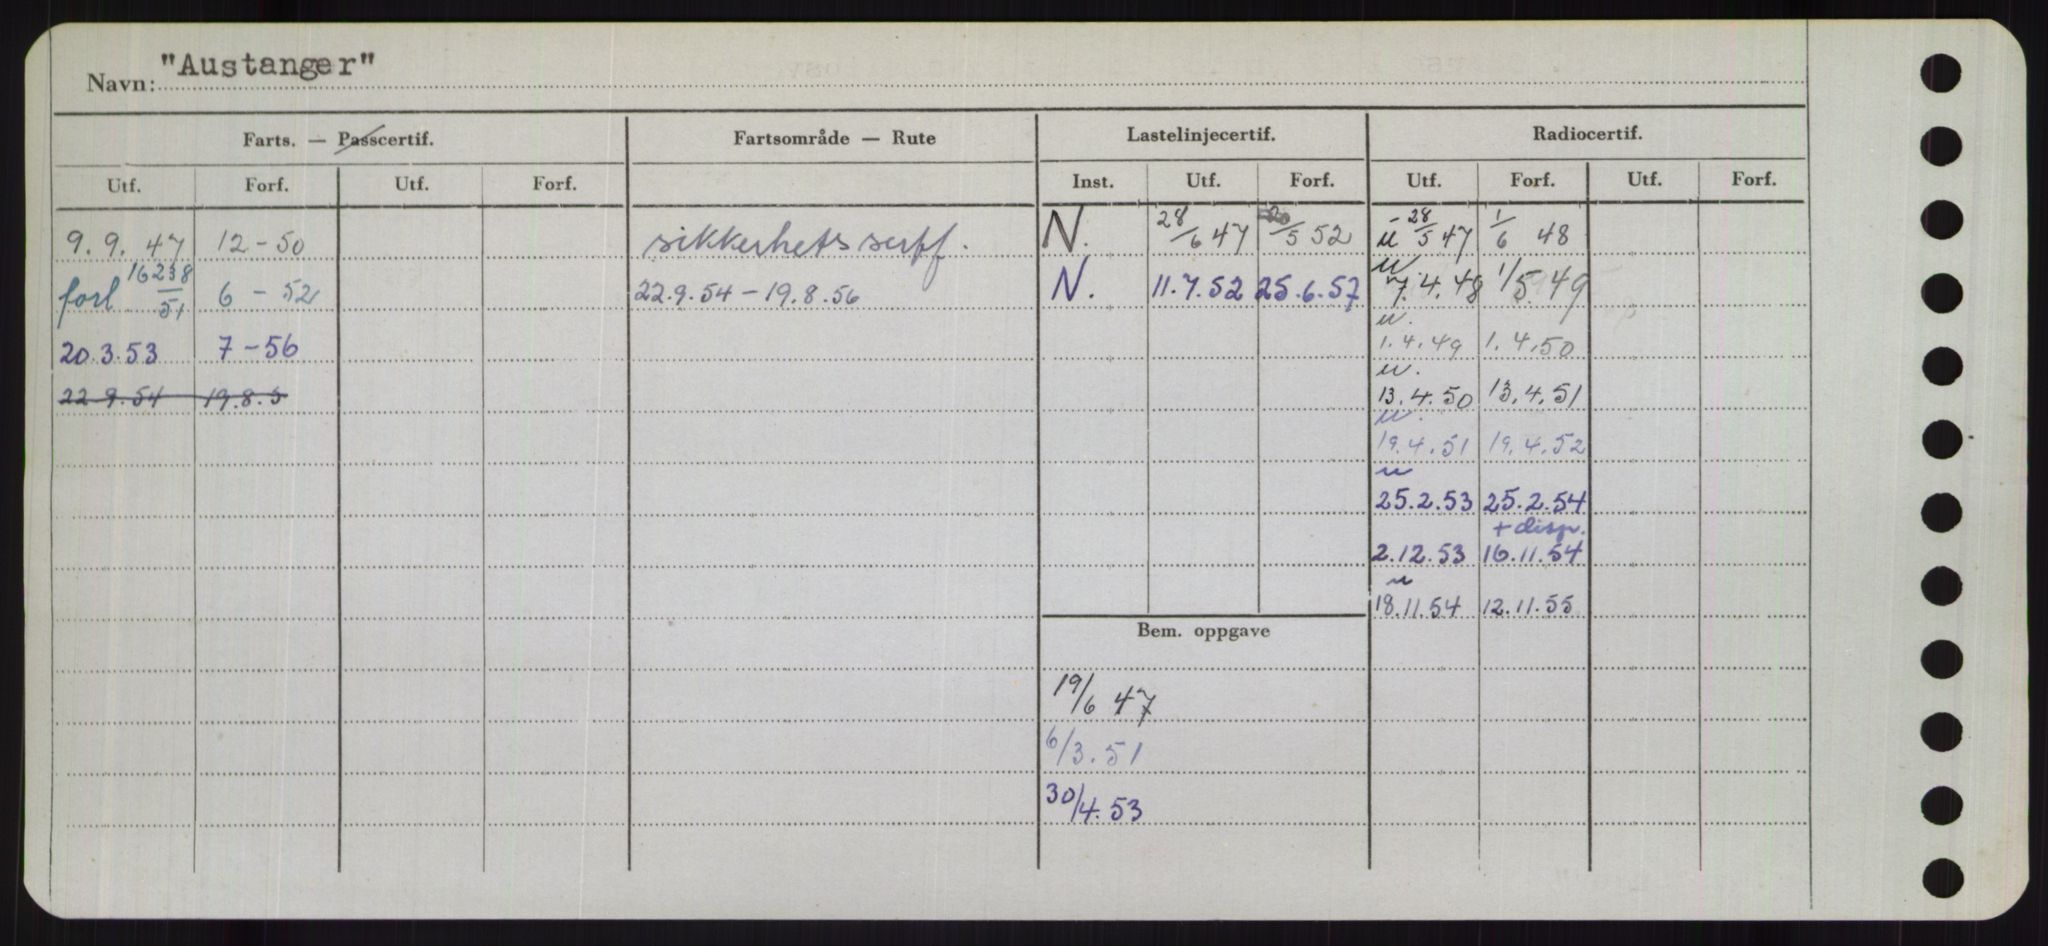 Navn: "Austanger"
Farts. — Passcertif. Fartsområde — Rute Lastelinjecertif. Radiocertif.
Utf. Forf. Utf. Forf. Inst. Utf. Forf. Utf. Forf. Utf. Forf.
9.9.47 12-50 sikkerhetssertf. N. 28/6 47 /5 52 u 28/5 47 1/6 48
forl 16238/51 6-52 22.9.54-19.8.56 N. 11.7.52 25.6.57 u 7.4.48 1/5 49
20.3.53 7-56 u. 1.4.49 1.4.50
22.9.54 19.8.5 u. 13.4.50 13.4.51
u. 19.4.51 19.4.52
u 25.2.53 25.2.54
+ disp.
2.12.53 16.11.54
u 18.11.54 12.11.55
Bem. oppgave
19/6 47
6/3.51
30/4.53